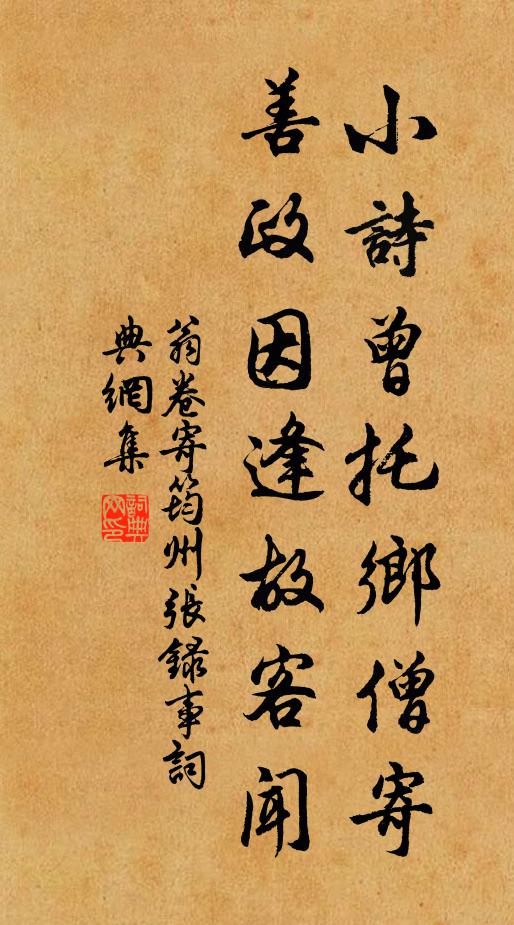 小詩曾托鄉僧寄
善政因逢故客聞
翁卷寄筠州張錄事詞
典網集
詞典
网印